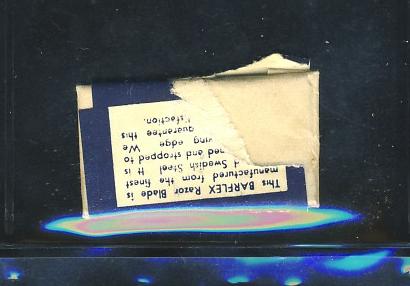 This BARFLEX Razor Blade is
manufactured from the finest
Swedish Steel It is
and stropped to
edge We
guarantee this